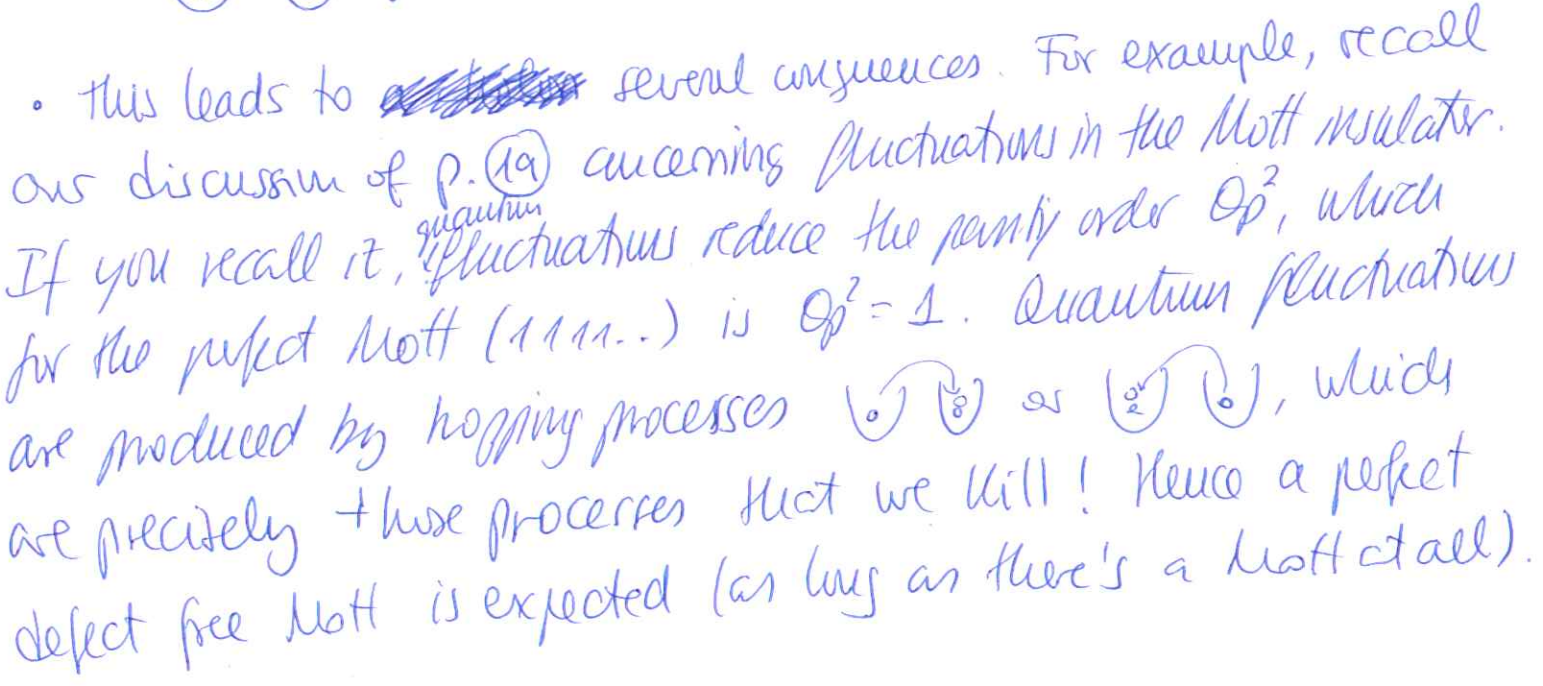 • this leads to several consquences. For example, recall
our discussion of p. 19 concerning fluctuations in the Mott insulator.
If you recall it, quantum fluctuations reduce the parity order O_p^2, which
for the perfect Mott (1111..) is O_p^2 = 1. Quantum fluctuations
are produced by hopping processes or , which
are precisely those processes that we kill! Hence a perfect
defect free Mott is expected (as long as there's a Mott at all).